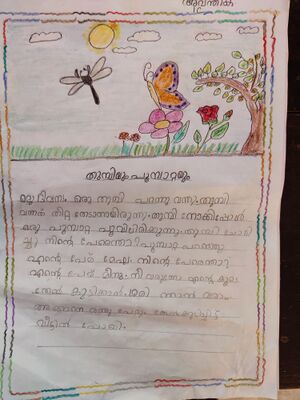 അവന്തിക
തുമ്പിയും പൂമ്പാറ്റയും
ഒരു ദിവസം ഒരു തുമ്പി പറന്നു വന്നു. തുമ്പി
വന്നത് തീറ്റ തേടാനായിരുന്നു. തുമ്പി നോക്കിയപ്പോൾ
ഒരു പൂമ്പാറ്റ പൂവിലിരിക്കുന്നു. തുമ്പി ചോദി
ച്ചു നിന്റെ പേരെന്താ? പൂമ്പാറ്റ പറഞ്ഞു
എന്റെ പേര് നിന്റെ പേരെന്താ?
എന്റെ പേര് മീനു. നീ വരുന്നോ എന്റെ കൂടെ
തേൻ കുടിക്കാൻ ഞാൻ വരാം
അങ്ങനെ രണ്ടു പേരും തേൻ കുടിച്ചിട്ട്
വീട്ടിൽ പോയി.